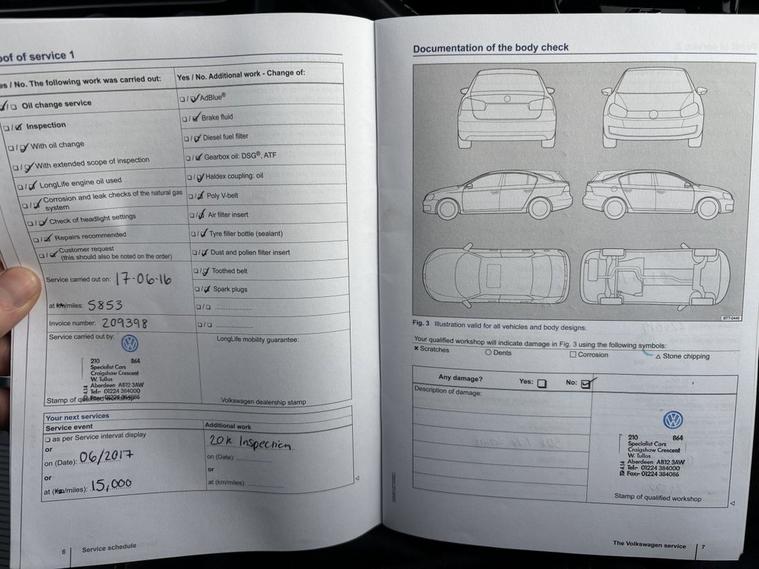 oof of service 1
es / No. The following work was carried out:
Yes / No. Additional work - Change of:
Oil change service
Inspection
With oil change
With extended scope of inspection
LongLife engine oil used
Corrosion and leak checks of the natural gas
system
Check of headlight settings
Repairs recommended
Customer request
(this should also be noted on the order)
AdBlue®
Brake fluid
Diesel fuel filter
Gearbox oil: DSG®, ATF
Haldex coupling: oil
Poly V-belt
Air filter insert
Tyre filler bottle (sealant)
Dust and pollen filter insert
Toothed belt
Spark plugs
Service carried out on: 17-06-16
at km/miles: 5853
Invoice number: 209398
Service carried out by:
LongLife mobility guarantee:
210 864
Specialist Cars
Craigshaw Crescent
W. Tullos
Aberdeen AB12 3AW
Tel:- 01224 384000
Stamp of qualified workshop
Volkswagen dealership stamp
Your next services
Service event
Additional work
as per Service interval display
or
on (Date): 06/2017
or
at (km/miles): 15,000
20K Inspection
on (Date):
or
at (km/miles):
6 Service schedule
Documentation of the body check
BTT-0446
Fig. 3 Illustration valid for all vehicles and body designs.
Your qualified workshop will indicate damage in Fig. 3 using the following symbols:
× Scratches ○ Dents □ Corrosion △ Stone chipping
Any damage? Yes: No:
Description of damage:
210 864
Specialist Cars
Craigshaw Crescent
W. Tullos
Aberdeen AB12 3AW
Tel:- 01224 384000
Fax:- 01224 384086
Stamp of qualified workshop
The Volkswagen service 7